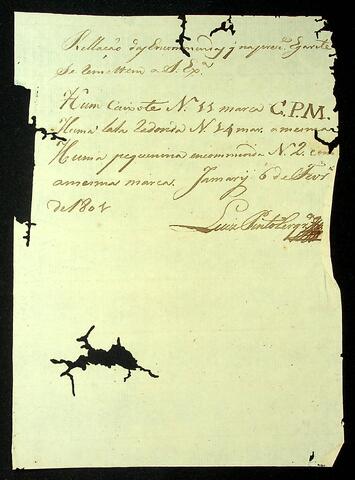 Rellação das Encommendas q̃ na prez.e Igarité
se remettem a S. Ex.a
Hum Caixote N. 11 marca C.P.M.
Huma lata redonda N. 14 mar. a mesma
Huma pequenina encommenda N. 2. com
a mesma marca. Jamarý 6 de Fevr.o
de 180
Luiz Pinto